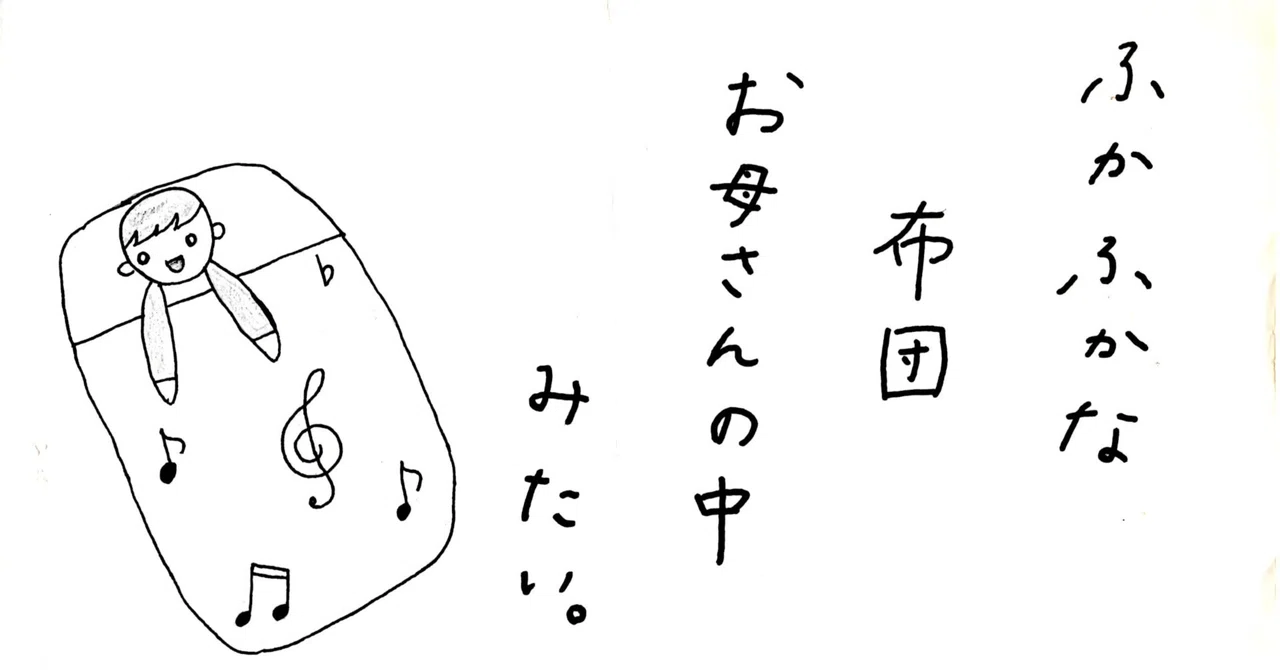 ふかふかな
布団
お母さんの中
みたい。